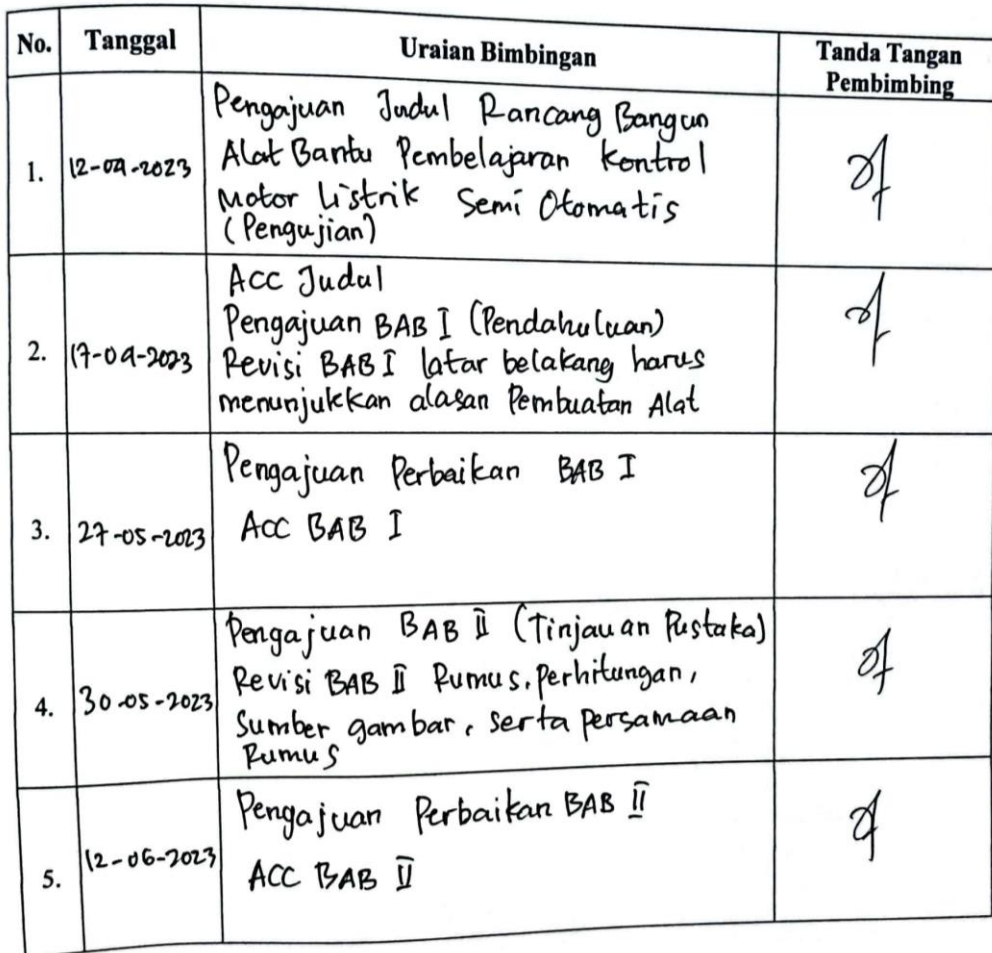 No.
Tanggal
Uraian Bimbingan
Tanda Tangan
Pembimbing
1.
12-04-2023
Pengajuan Judul Rancang Bangun
Alat Bantu Pembelajaran Kontrol
Motor Listrik Semi Otomatis
(Pengujian)
2.
17-04-2023
ACC Judul
Pengajuan BAB I (Pendahuluan)
Revisi BAB I latar belakang harus
menunjukkan alasan Pembuatan Alat
3.
27-05-2023
Pengajuan Perbaikan BAB I
ACC BAB I
4.
30-05-2023
Pengajuan BAB II (Tinjauan Pustaka)
Revisi BAB II Rumus, Perhitungan,
Sumber gambar, serta persamaan
Rumus
5.
12-06-2023
Pengajuan Perbaikan BAB II
ACC BAB II